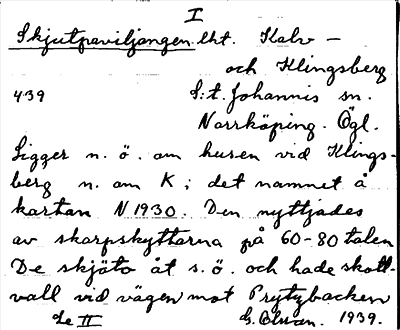 I
Skjutpaviljongen. lht. Kalv -
och Klingsberg
439 S:t. Johannis sn.
Norrköping. Ögl.
Ligger n. ö. om husen vid Klings-
berg n. om K; det namnet å
kartan N 1930. Den nyttjades
av skarpskyttarna på 60-80 talen
De skjöto åt s. ö. och hade skott-
vall vid vägen mot Prytzbacken
Se II G. 1939.